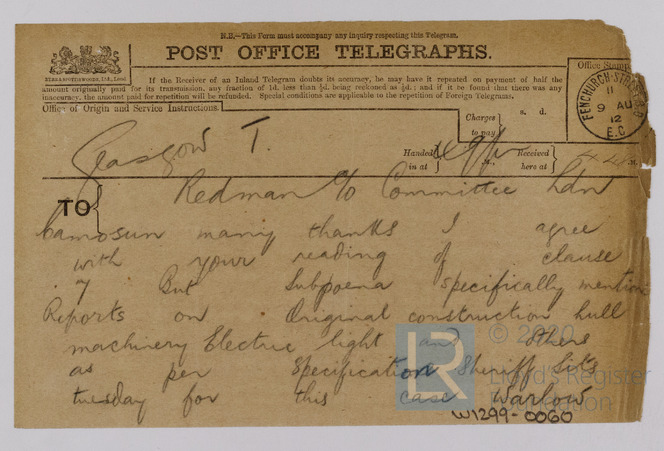 N.B.—This Form must accompany any inquiry respecting this Telegram.
POST OFFICE TELEGRAPHS.
If the Receiver of an Inland Telegram doubts its accuracy, he may have it repeated on payment of half the
amount originally paid for its transmission, any fraction of 1d. less than ½d. being reckoned as ½d.; and if it be found that there was any
inaccuracy, the amount paid for repetition will be refunded. Special conditions are applicable to the repetition of Foreign Telegrams.
Office of Origin and Service Instructions.
Office Stamp
FENCHURCH-STREET
11
9 AU
12
E.C
Charges
to pay
s. d.
Glasgow T.
Handed
in at
M.,
Received
here at
M.
TO
Redman c/o Committee Ldn
Camosun many thanks I agree
with your reading of clause
7 But Subpoena specifically mention
Reports on Original construction hull
machinery Electric light and others
as per Specification Sheriff Sits
tuesday for this case Warlow
LR
© 2020
Lloyd's Register
Foundation
W1299-0060